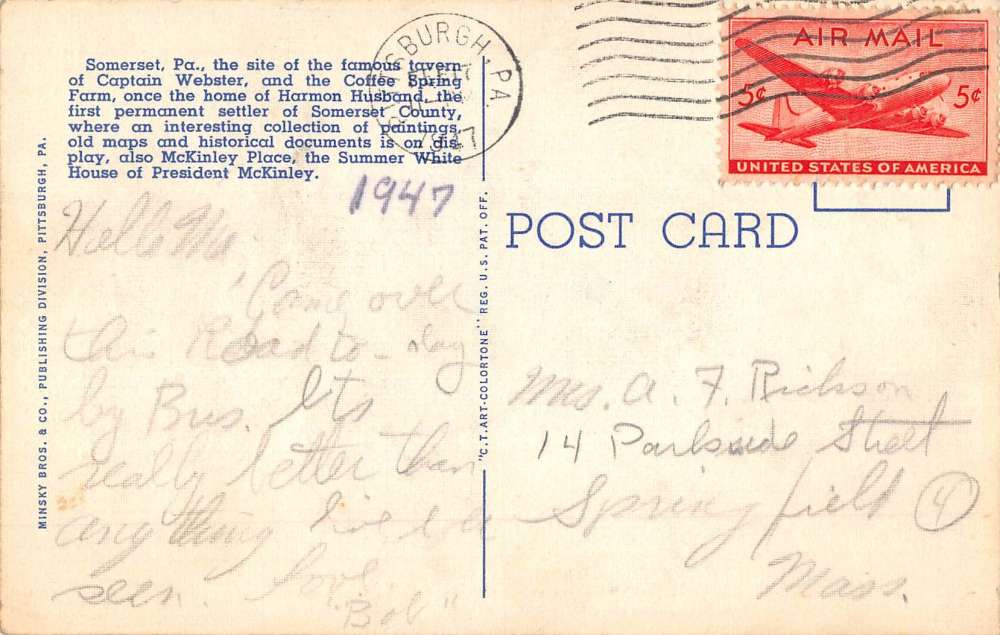 Somerset, Pa., the site of the famous tavern
of Captain Webster, and the Coffee Spring
Farm, once the home of Harmon Husband, the
first permanent settler of Somerset County,
where an interesting collection of paintings,
old maps and historical documents is on dis-
play, also McKinley Place, the Summer White
House of President McKinley.
1947
Hello Ma
Come over
this Road to-day
by Bus. Its
realy better than
anything I've ever
seen. love
"Bob"
MINSKY BROS. & CO., PUBLISHING DIVISION, PITTSBURGH, PA.
"C.T. ART-COLORTONE" REG. U.S. PAT. OFF.
BURGH, PA.
17
1947
AIR MAIL
5¢ 5¢
UNITED STATES OF AMERICA
POST CARD
Mrs. A. F. Rickson
14 Parkside Street
Springfield (4)
Mass.